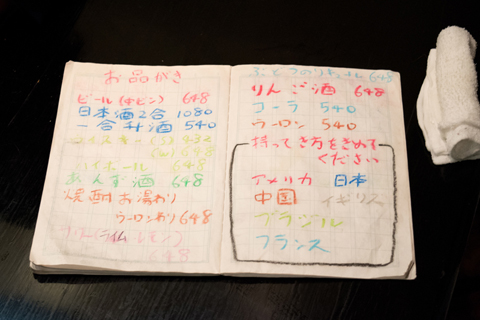 お品がき
ビール(中ビン) 648
日本酒2合 1080
一合升酒 540
ウイスキー(S) 432
(W) 648
ハイボール 648
あんず酒 648
焼酎お湯わり
ウーロンわり 648
サワー(ライム レモン)
648
ぶどうのリキュール 648
りんご酒 648
コーラ 540
ウーロン 540
持ってき方をきめて
ください
アメリカ 日本
中国 イギリス
ブラジル
フランス